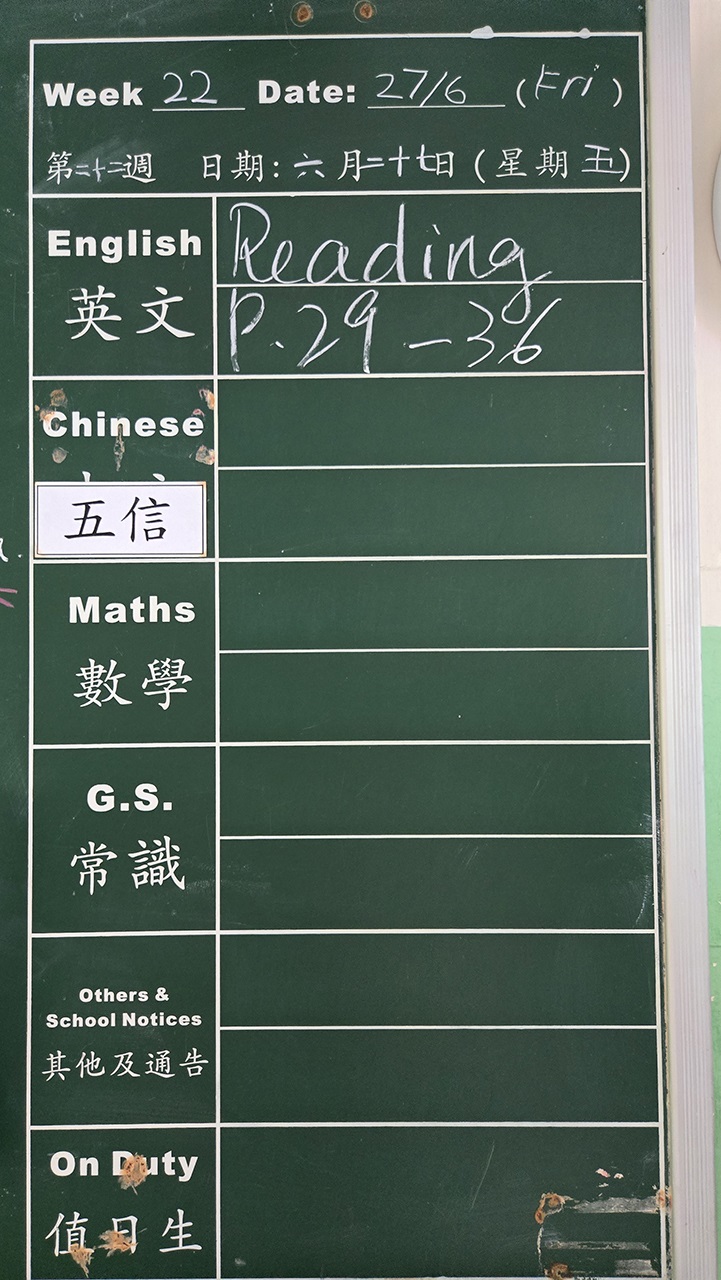 Week 22 Date: 27/6 (Fri)
第二十二週 日期:六月二十七日(星期五)
English
英文
Reading
P.29-36
Chinese
五信
Maths
數學
G.S.
常識
Others &
School Notices
其他及通告
On Duty
值日生